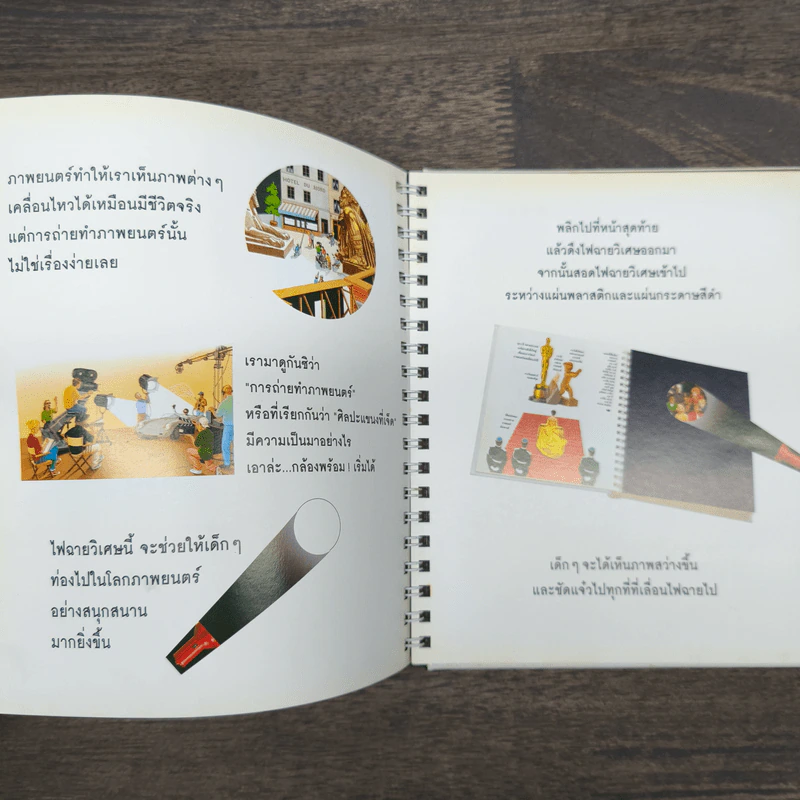 ภาพยนตร์ทำให้เราเห็นภาพต่าง ๆ
เคลื่อนไหวได้เหมือนมีชีวิตจริง
แต่การถ่ายทำภาพยนตร์นั้น
ไม่ใช่เรื่องง่ายเลย
HOTEL DU NORD
เรามาดูกันซิว่า
"การถ่ายทำภาพยนตร์"
หรือที่เรียกกันว่า "ศิลปะแขนงที่เจ็ด"
มีความเป็นมาอย่างไร
เอาล่ะ...กล้องพร้อม ! เริ่มได้
ไฟฉายวิเศษนี้ จะช่วยให้เด็ก ๆ
ท่องไปในโลกภาพยนตร์
อย่างสนุกสนาน
มากยิ่งขึ้น
พลิกไปที่หน้าสุดท้าย
แล้วดึงไฟฉายวิเศษออกมา
จากนั้นสอดไฟฉายวิเศษเข้าไป
ระหว่างแผ่นพลาสติกและแผ่นกระดาษสีดำ
เด็ก ๆ จะได้เห็นภาพสว่างขึ้น
และชัดแจ๋วไปทุกที่ที่เลื่อนไฟฉายไป